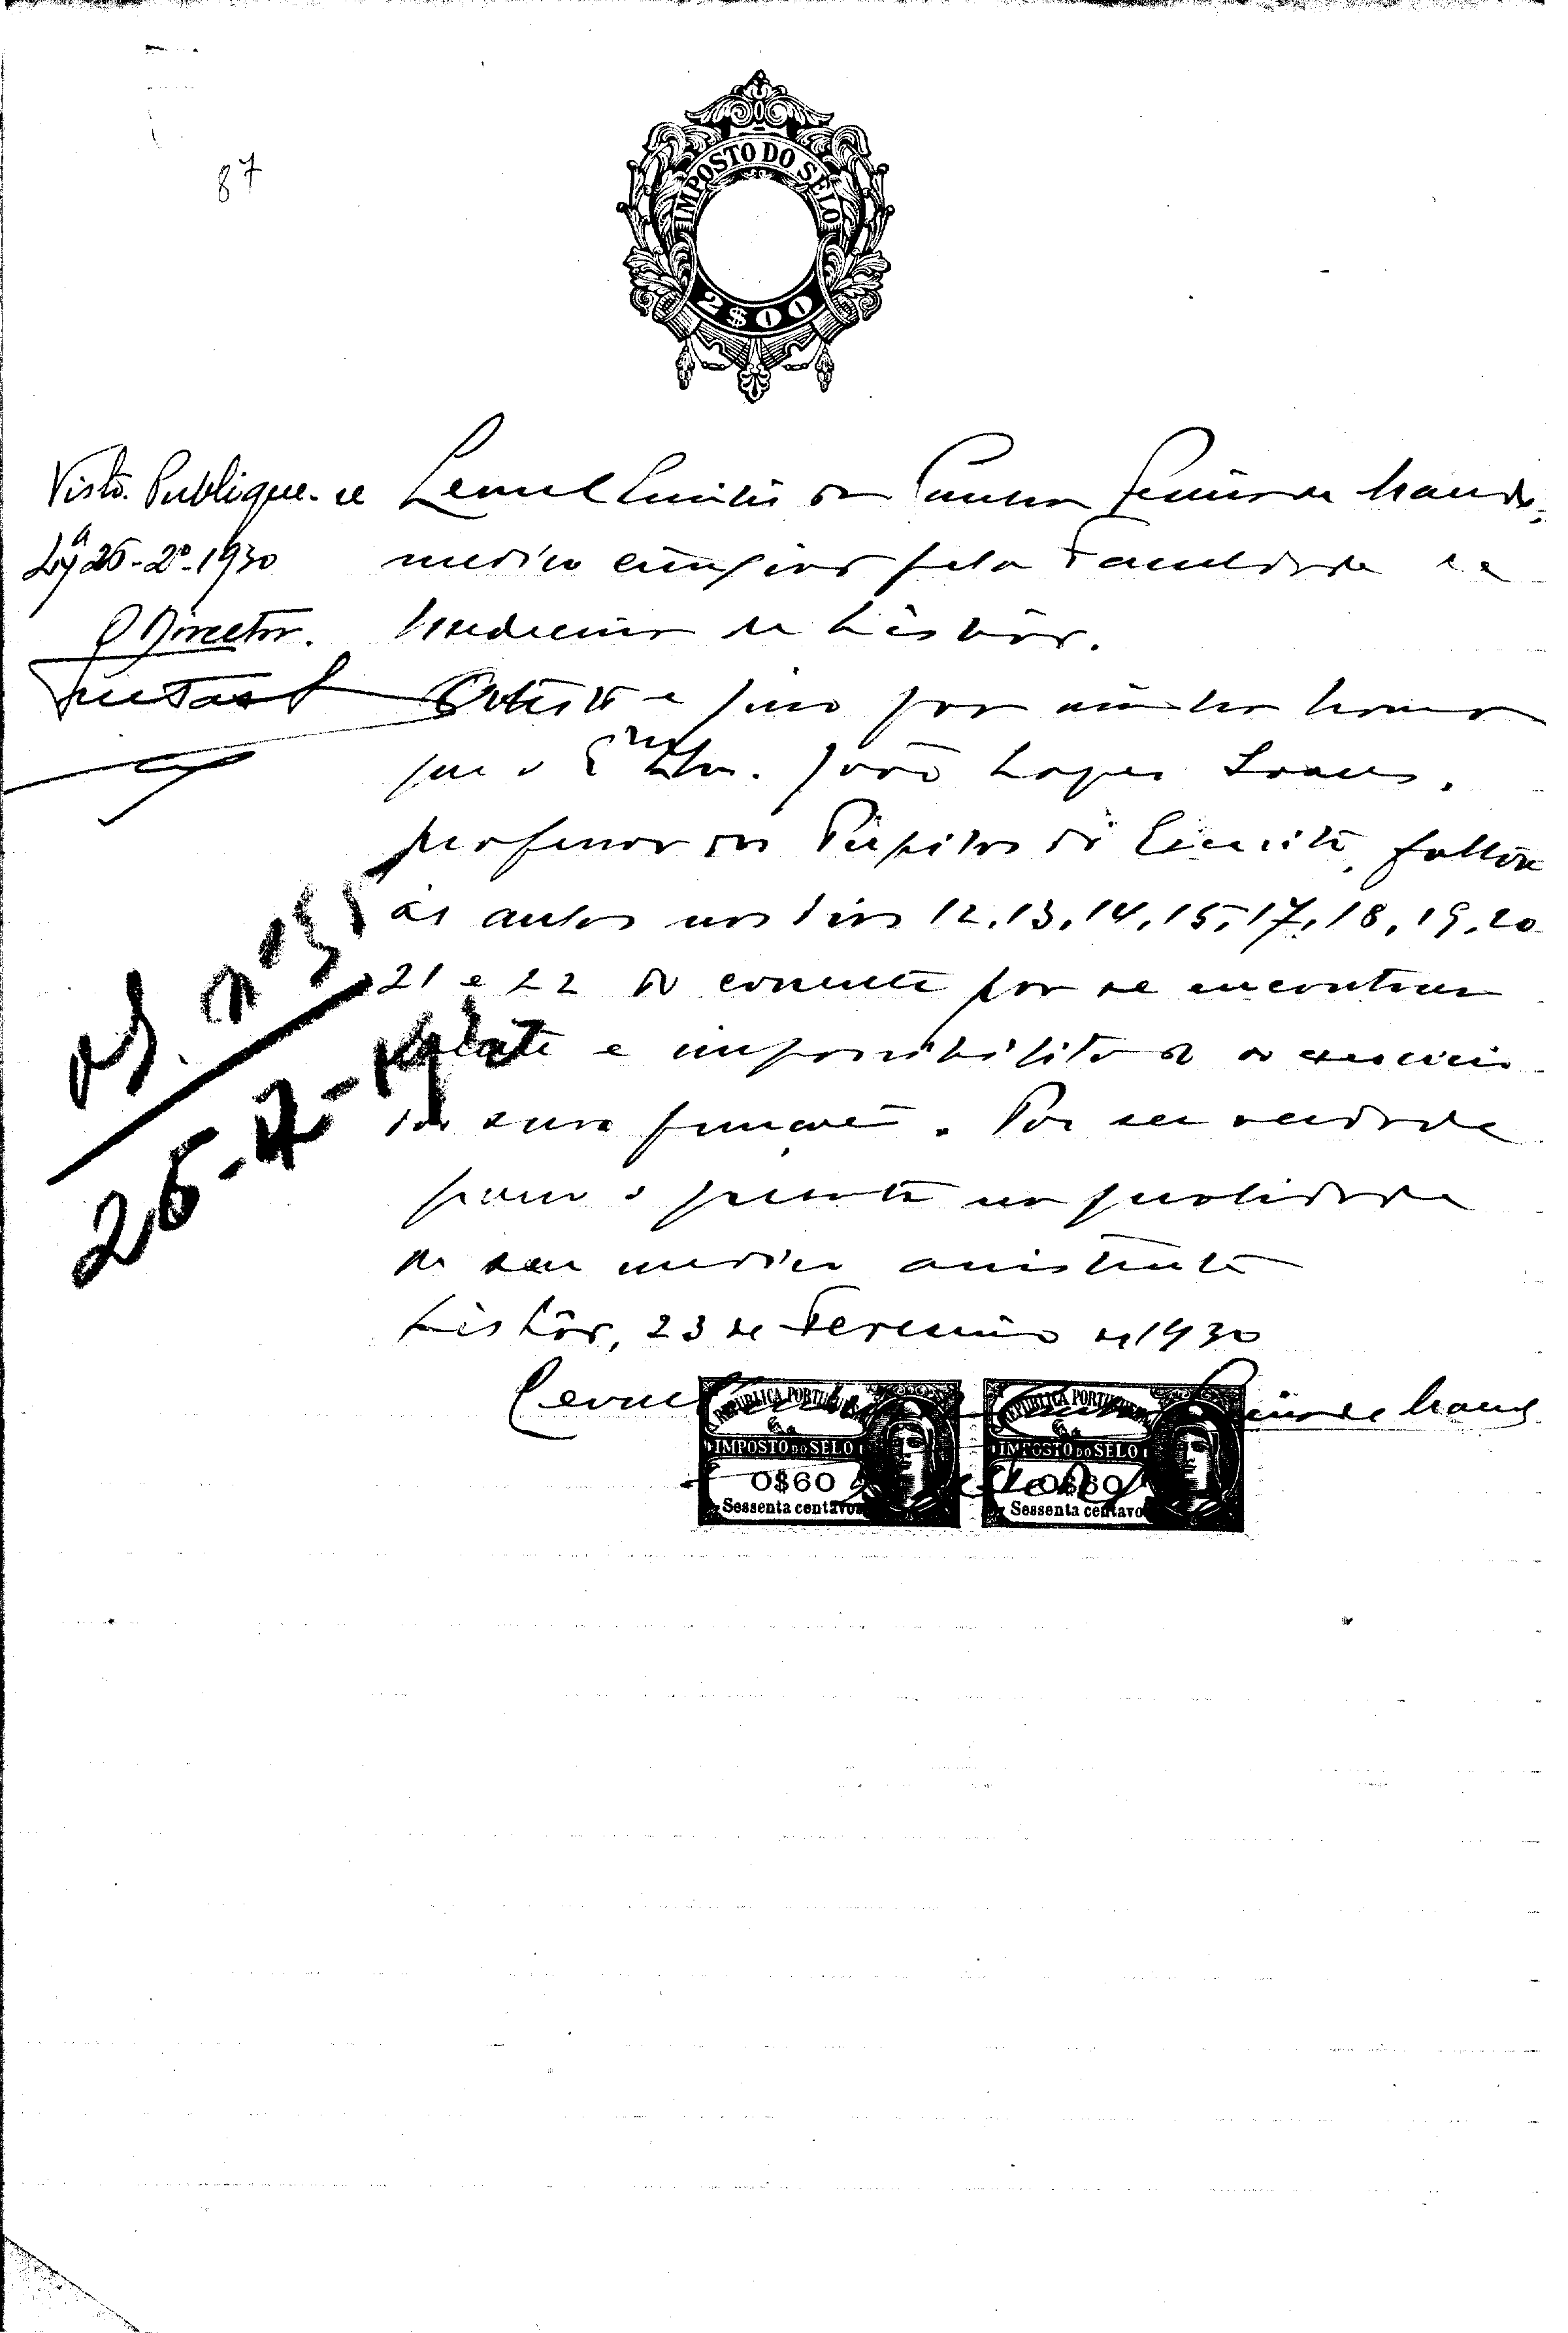 87
IMPOSTO DO SELO
2$00
Visto. Publique-se
Lxª 25-2º-1930
O Director.
medico cirurgião pela Faculdade de
Medicina de Lisbôa.
Attesto e juro por minha honra
que o Exmo Snr. João Lopes Soares,
professor dos Pupilos do Exercito, faltou
ás aulas nos dias 12, 13, 14, 15, 17, 18, 19, 20
21 e 22 do corrente por se encontrar
doente e impossibilitado do exercicio
das suas funções. Por ser verdade
passo o presente na qualidade
de seu medico assistente
Lisbôa, 23 de Fevereiro de 1930
REPUBLICA PORTUGUESA
IMPOSTO DO SELO
0$60
Sessenta centavos
REPUBLICA PORTUGUESA
IMPOSTO DO SELO
0$60
Sessenta centavos